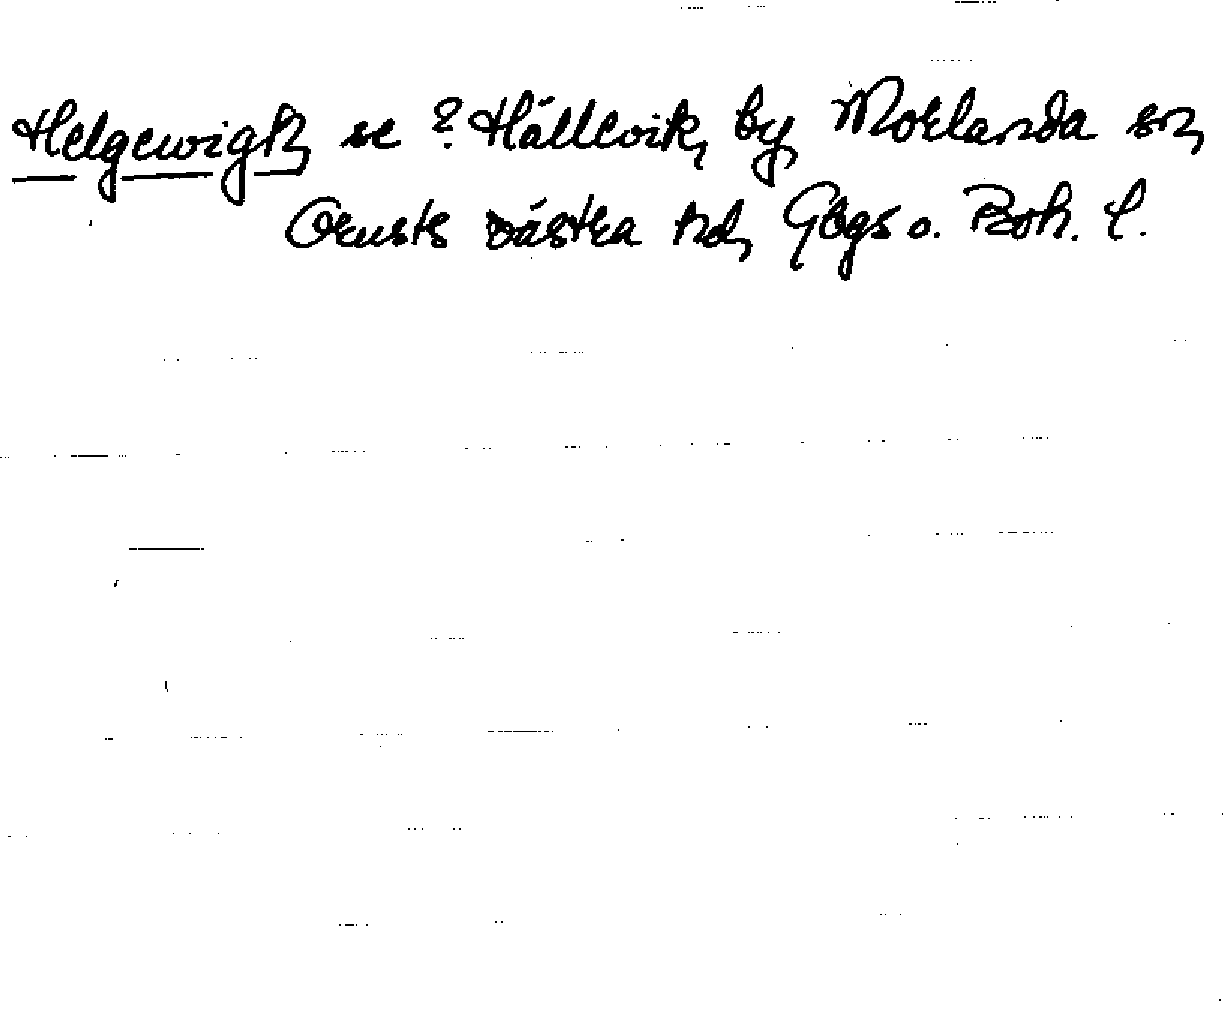 Helgewigk, se ? Hällevik, by, Morlanda sn,
Orusts västra hd, Gbgs o. Boh. l.